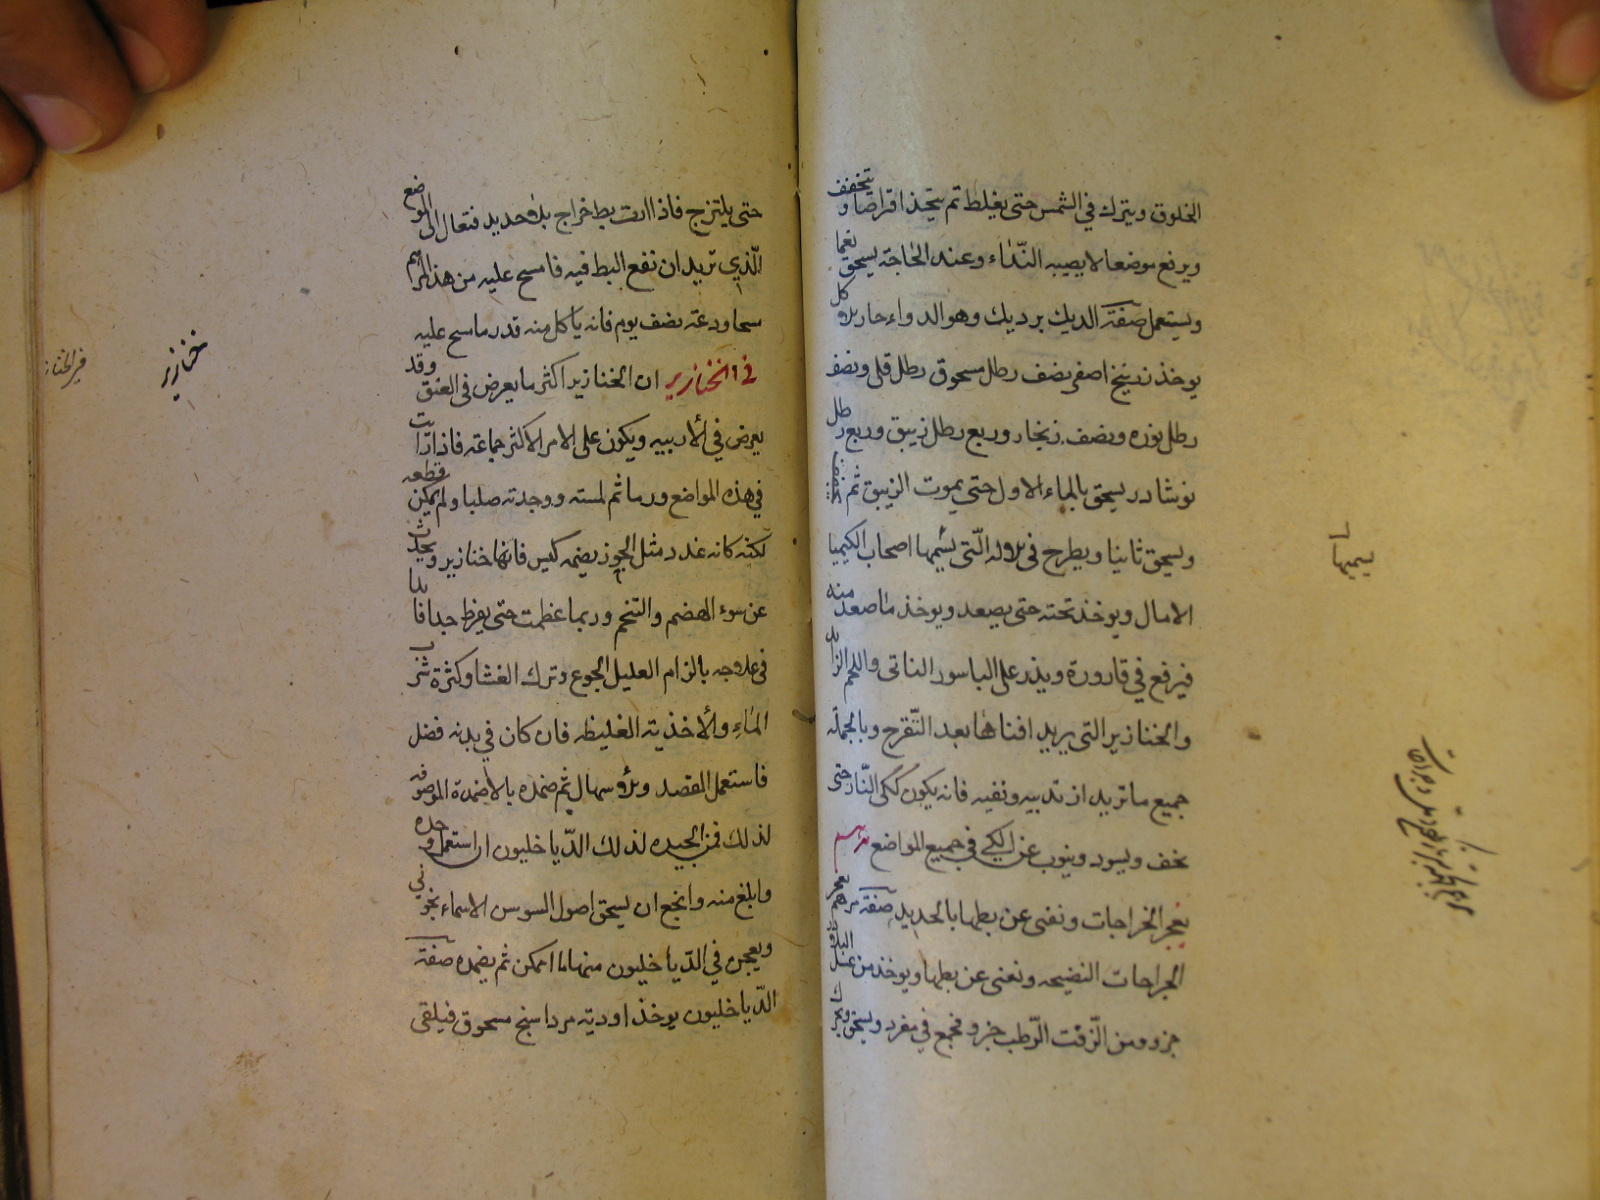 الخلوق ويترك في الشمس حتى يغلظ ثم يتخذ اقراصا ويتخفف
ويرفع موضعا لا يصيبه النداء وعند الحاجة يسحق نعما
ويستعمل صفة الديك برديك وهو الدواء حار
يوخذ زرنيخ اصفر نصف رطل مسحوق رطل قلى ونصف
رطل نوره ونصف زنجار وربع رطل زيبق وربع رطل
نوشادر يسحق بالماء الاول حتى يموت الزيبق ثم يجفف
ويسحق ثانيا ويطرح في التى يسميها اصحاب الكيميا
الامال ويوخذ تحته حتى يصعد ويوخذ ما صعد منه
فيرفع في قارورة ويذر على الباسور الناتى واللحم الزائد
والخنازير التى يريد افناها بعد التقرح وبالجملة
جميع ما تريد ان تدبيه ونفيه فانه يكون ككى النار حتى
يخف ويسود وينوب عن الكي في جميع المواضع مرهم
يفجر الخراجات ونغنى عن بطها بالحديد صفة مرهم يفجر
الجراحات النضيجه ونغنى عن بطها ويوخذ من عسل البلادر
جزو ومن الزفت الرطب جزو فجمع في مغرد ويسخن ويحرك
يسميها
حتى يلتزج فاذا اردت بط خراج بلا حديد فتعال الى الموضع
الذي تريد ان تفع البط فيه فامسح عليه من هذا المرهم
مسحا ودعه نصف يوم فانه ياكل منه قدر ما مسح عليه
في الخنازير ان الخنازير اكثر ما يعرض في العنق وقد
يعرض في الأربيه ويكون على الامر الاكثر جماعة فاذا رايت
في هذه المواضع ورما ثم لمسته ووجدته صلبا ولم يكن قطعه
لكنه كانه غدد مثل الجوز يضمه كيس فانها خنازير ويحدث
عن سوء الهضم والتخم وربما عظمت حتى يفرط جدا فابدا
في علاجه بالزام العليل الجوع وترك العشا وكثرة شرب
الماء والأغذية الغليظه فان كان في بدنه فضل
فاستعمل الفصد ودواء مسهال ثم ضمده بالاضمدة الموصوفه
لذلك فمن الجيده لذلك الدياخليون ان استعمل وحده
وابلغ منه وانجع ان يسحق اصول السوسن الاسماء نجونى
ويعجن في الدياخليون منها ما امكن ثم يضمده صفة
الدياخليون يوخذ اودية مرداسنج مسحوق فيلقى
خنازير